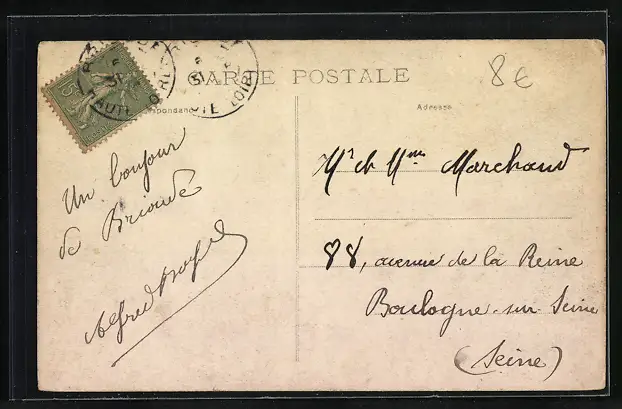 CARTE POSTALE
8€
Correspondance
Adresse
15
HAUTE LOIRE
Un bonjour
de Brioude
Alfred
Mr et Mme Marchand
88, avenue de la Reine
Boulogne-sur-Seine
(Seine)